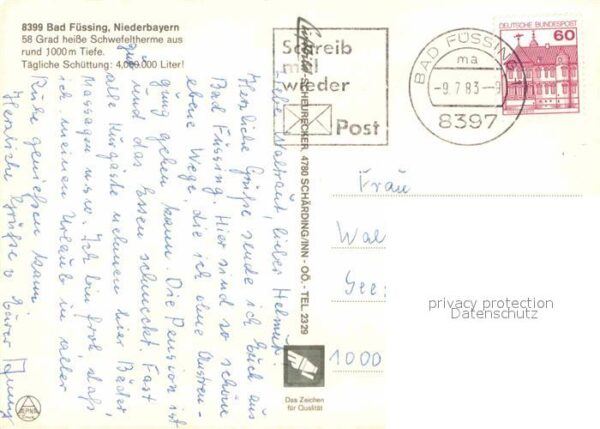 8399 Bad Füssing, Niederbayern
58 Grad heiße Schwefeltherme aus
rund 1000 m Tiefe.
Tägliche Schüttung: 4,000.000 Liter!
Liebe Waltraut, lieber Helmut!
Herzliche Grüße sende ich Euch aus
Bad Füssing. Hier sind so schöne
ebene Wege, die ich ohne Anstren-
gung gehen kann. Die Pension ist
gut und das Essen schmeckt. Fast
alle Kurgäste nehmen hier Bäder,
Massagen usw. Ich bin froh, daß
ich meinen Urlaub in aller
Ruhe genießen kann.
Herzliche Grüße v. Eurer
SCHEIRECKER, 4780 SCHÄRDING/INN - OÖ. - TEL. 2329
Schreib
mal
wieder
Post
BAD FÜSSING 1
ma
-9.7.83-9
8397
DEUTSCHE BUNDESPOST
60
Frau
Wal
Gee
1000
privacy protection
Datenschutz
Das Zeichen
für Qualität